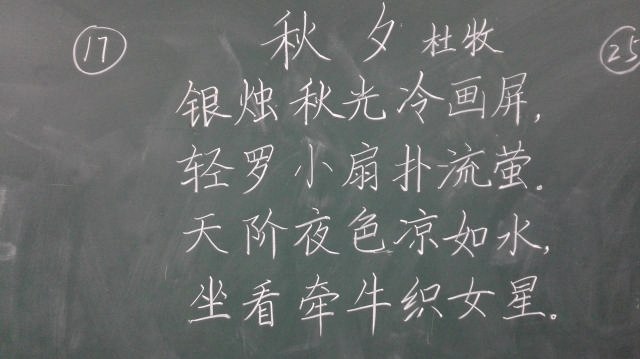 17 秋夕 杜牧 25
银烛秋光冷画屏,
轻罗小扇扑流萤。
天阶夜色凉如水,
坐看牵牛织女星。